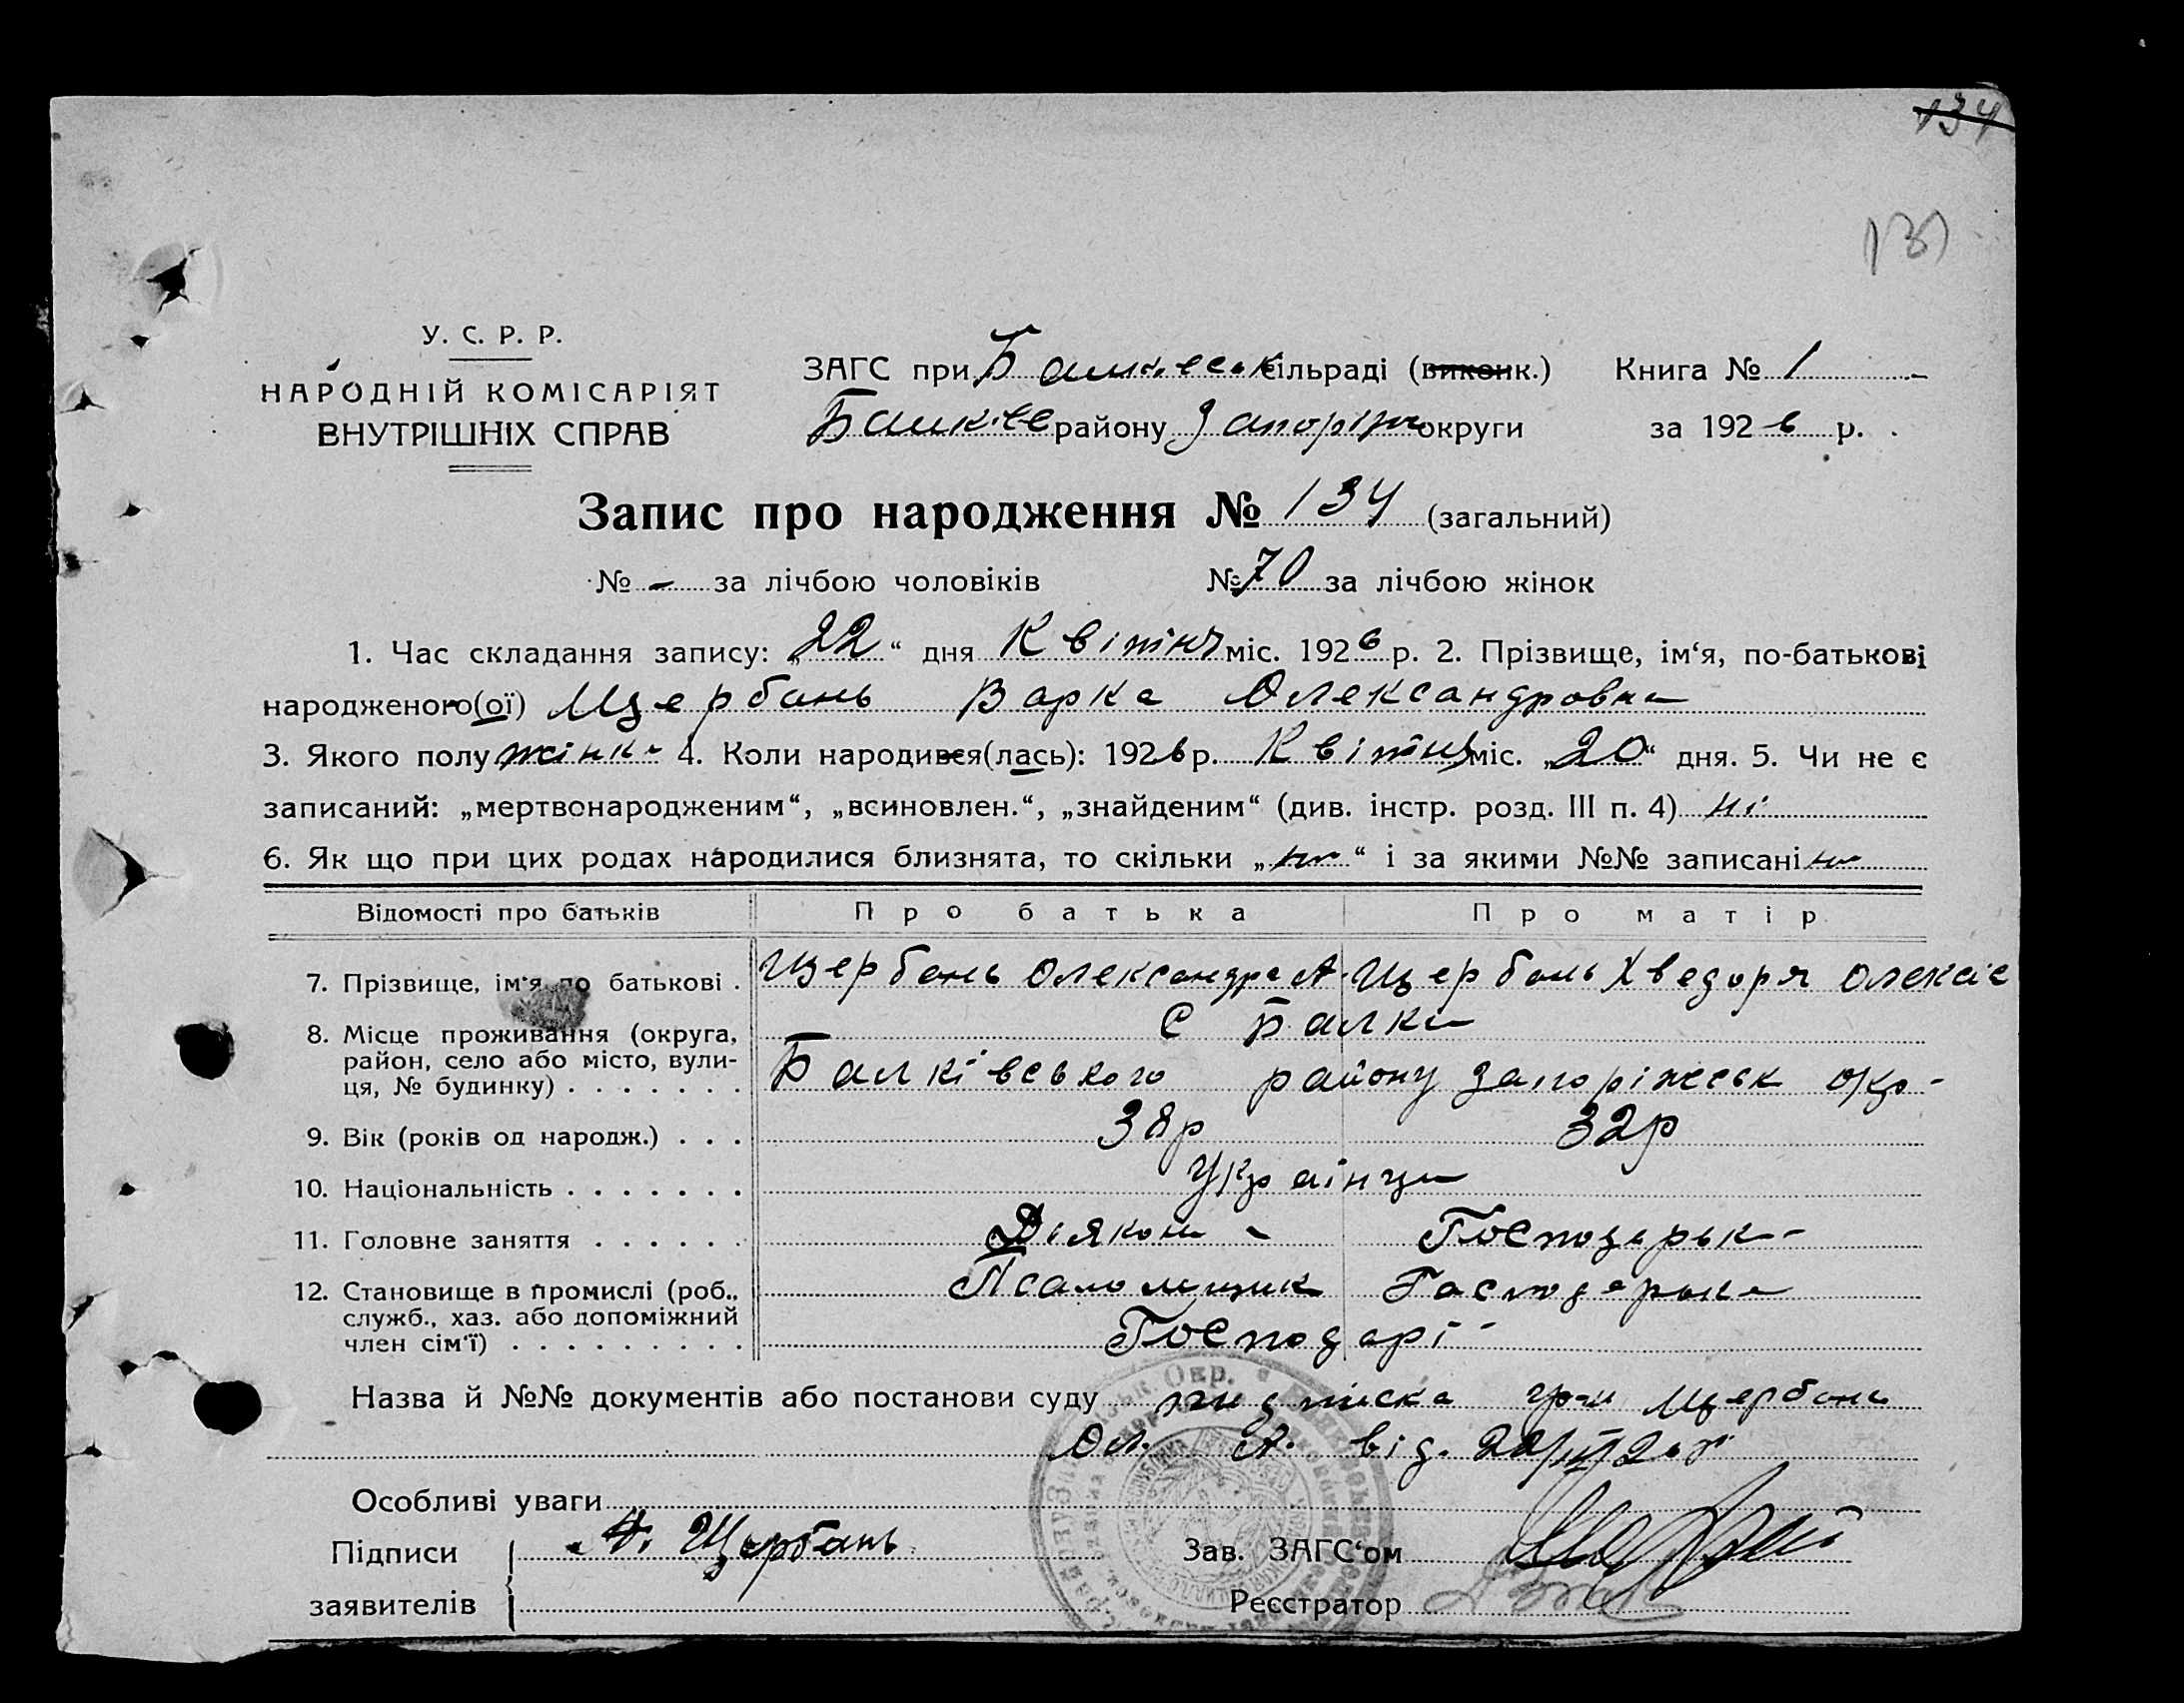 134
131
У. С. Р. Р.
НАРОДНІЙ КОМІСАРІЯТ
ВНУТРІШНІХ СПРАВ
ЗАГС при Балкивськ сільраді (виконк.) Книга № 1
Балківс району Запоріжс округи за 1926 р.
Запис про народження № 134 (загальний)
№ - за лічбою чоловіків № 70 за лічбою жінок
1. Час складання запису: „22“ дня Квітня міс. 1926 р. 2. Прізвище, ім‘я, по-батькові
народженого(ої) Щербань Варка Олександровна
3. Якого полу жінка 4. Коли народився(лась): 1926 р. Квітня міс. „20“ дня. 5. Чи не є
записаний: „мертвонародженим“, „всиновлен.“, „знайденим“ (див. інстр. розд. III п. 4) ні
6. Як що при цих родах народилися близнята, то скільки „ні“ і за якими №№ записані ні
Відомості про батьків Про батька Про матір
7. Прізвище, ім‘я по батькові . Щербань Олександра А. Щербань Хведоря Олексіє
8. Місце проживання (округа, С Балки
район, село або місто, вули-
ця, № будинку) . . . . . . . Балківського району Запоріжськ окр-
9. Вік (років од народж.) . . . 38р 32р
10. Національність . . . . . . . Українци
11. Головне заняття . . . . . . Діякон - Господарьк-
12. Становище в промислі (роб., Псаломщик Господарька
служб., хаз. або допоміжний
член сім‘ї) . . . . . . . . . Господарі
Назва й №№ документів або постанови суду підписка гр-н Щербань
Ол. А. від. 22/IV 26 р
Особливі уваги
Підписи А. Щербань Зав. ЗАГС‘ом
заявителів Реєстратор